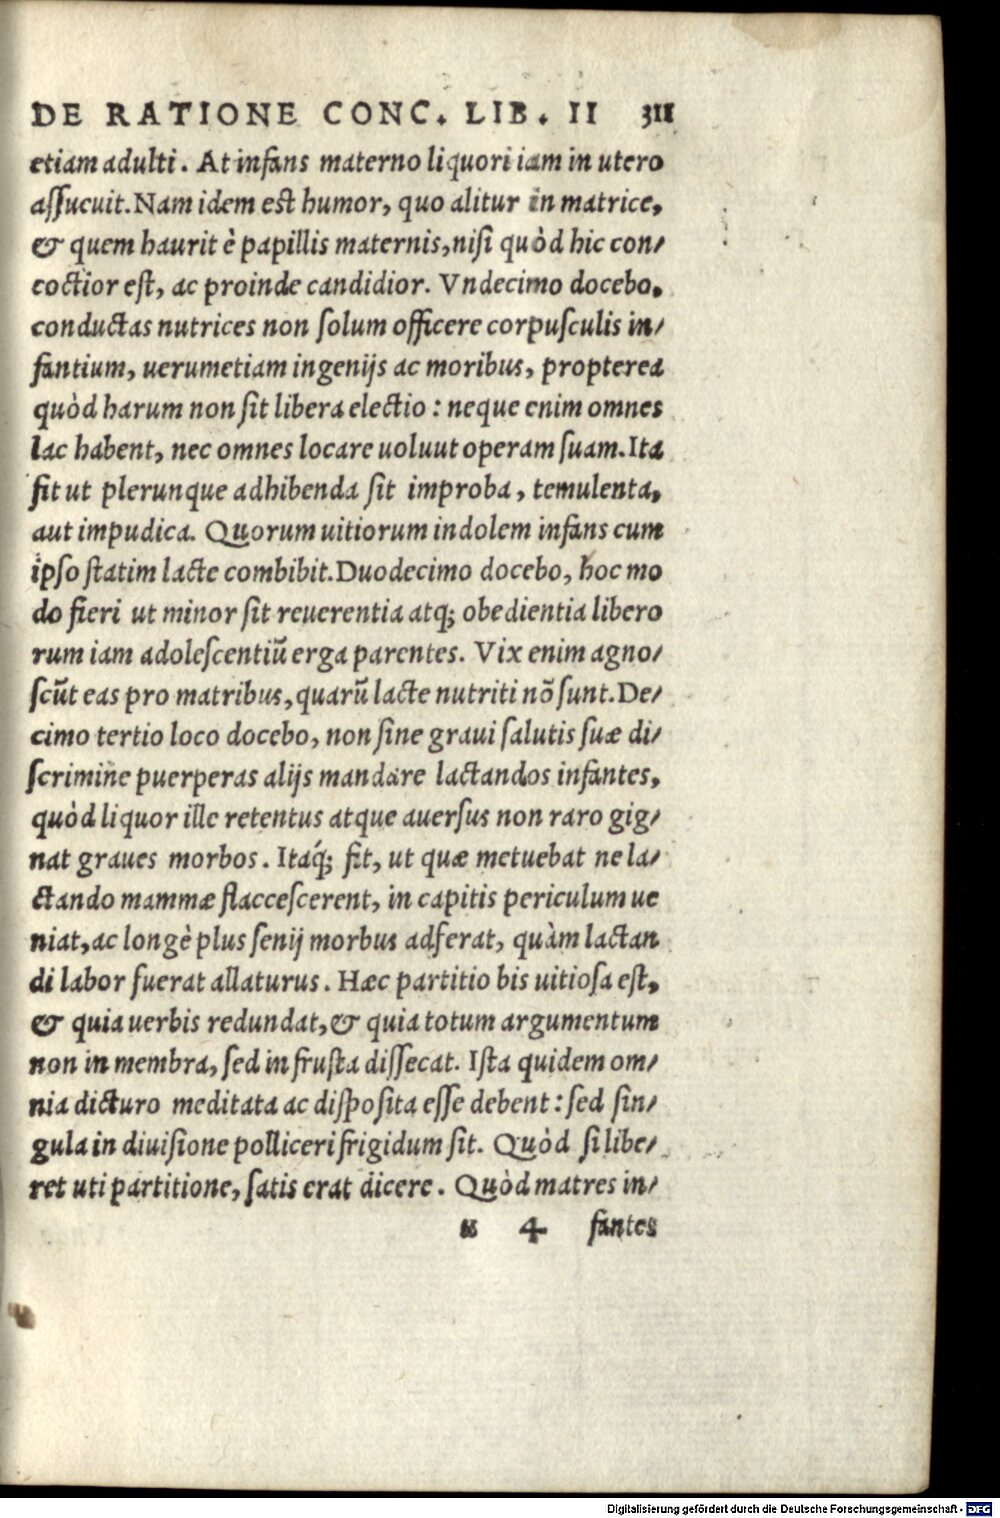 DE RATIONE CONC. LIB. II 311
etiam adulti. At infans materno liquori iam in utero
assucuit. Nam idem est humor, quo alitur in matrice,
& quem haurit è papillis maternis, nisi quòd hic con/
coctior est, ac proinde candidior. Vndecimo docebo,
conductas nutrices non solum officere corpusculis in/
fantium, uerumetiam ingenijs ac moribus, propterea
quòd harum non sit libera electio: neque enim omnes
lac habent, nec omnes locare uoluut operam suam. Ita
fit ut plerunque adhibenda sit improba, temulenta,
aut impudica. Quorum uitiorum indolem infans cum
ipso statim lacte combibit. Duodecimo docebo, hoc mo
do fieri ut minor sit reuerentia atq; obedientia libero
rum iam adolescentiũ erga parentes. Vix enim agno/
scũt eas pro matribus, quarũ lacte nutriti nõ sunt. De/
cimo tertio loco docebo, non sine graui salutis suæ di/
scrimine puerperas alijs mandare lactandos infantes,
quòd liquor ille retentus atque auersus non raro gig/
nat graues morbos. Itaq́; fit, ut quæ metuebat ne la/
ctando mammæ flaccescerent, in capitis periculum ue
niat, ac longè plus senij morbus adferat, quàm lactan
di labor fuerat allaturus. Hæc partitio bis uitiosa est,
& quia uerbis redundat, & quia totum argumentum
non in membra, sed in frusta dissecat. Ista quidem om/
nia dicturo meditata ac disposita esse debent: sed sin/
gula in diuisione polliceri frigidum sit. Quòd si libe/
ret uti partitione, satis erat dicere. Quòd matres in/
u 4 fantes
Digitalisierung gefördert durch die Deutsche Forschungsgemeinschaft - DFG